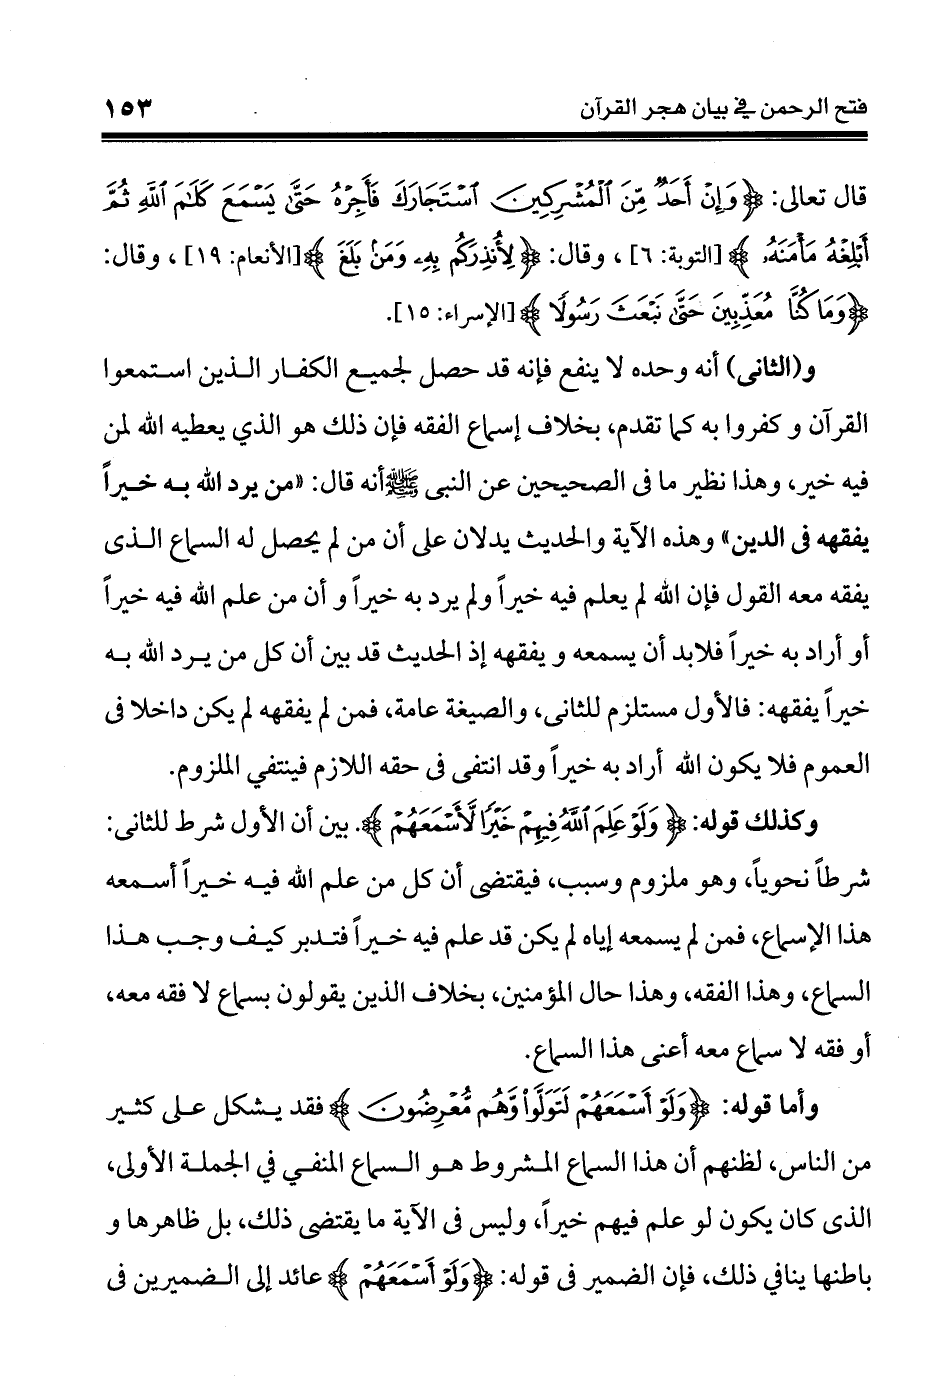 فتح الرحمن في بيان هجر القرآن ١٥٣
قال تعالى: ﴿وَإِنْ أَحَدٌ مِّنَ ٱلْمُشْرِكِينَ ٱسْتَجَارَكَ فَأَجِرْهُ حَتَّىٰ يَسْمَعَ كَلَٰمَ ٱللَّهِ ثُمَّ
أَبْلِغْهُ مَأْمَنَهُۥ﴾ [التوبة: ٦]، وقال: ﴿لِأُنذِرَكُم بِهِۦ وَمَنۢ بَلَغَ﴾ [الأنعام: ١٩]، وقال:
﴿وَمَا كُنَّا مُعَذِّبِينَ حَتَّىٰ نَبْعَثَ رَسُولًا﴾ [الإسراء: ١٥].
و(الثانى) أنه وحده لا ينفع فإنه قد حصل لجميع الكفار الذين استمعوا
القرآن و كفروا به كما تقدم، بخلاف إسماع الفقه فإن ذلك هو الذي يعطيه الله لمن
فيه خير، وهذا نظير ما فى الصحيحين عن النبى ﷺ أنه قال: «من يرد الله به خيراً
يفقهه فى الدين» وهذه الآية والحديث يدلان على أن من لم يحصل له السماع الذى
يفقه معه القول فإن الله لم يعلم فيه خيراً ولم يرد به خيراً و أن من علم الله فيه خيراً
أو أراد به خيراً فلابد أن يسمعه و يفقهه إذ الحديث قد بين أن كل من يرد الله به
خيراً يفقهه: فالأول مستلزم للثانى، والصيغة عامة، فمن لم يفقهه لم يكن داخلا فى
العموم فلا يكون الله أراد به خيراً وقد انتفى فى حقه اللازم فينتفي الملزوم.
وكذلك قوله: ﴿وَلَوْ عَلِمَ ٱللَّهُ فِيهِمْ خَيْرًا لَّأَسْمَعَهُمْ﴾. بين أن الأول شرط للثانى:
شرطاً نحوياً، وهو ملزوم وسبب، فيقتضى أن كل من علم الله فيه خيراً أسمعه
هذا الإسماع، فمن لم يسمعه إياه لم يكن قد علم فيه خيراً فتدبر كيف وجب هذا
السماع، وهذا الفقه، وهذا حال المؤمنين، بخلاف الذين يقولون بسماع لا فقه معه،
أو فقه لا سماع معه أعنى هذا السماع.
وأما قوله: ﴿وَلَوْ أَسْمَعَهُمْ لَتَوَلَّوا۟ وَّهُم مُّعْرِضُونَ﴾ فقد يشكل على كثير
من الناس، لظنهم أن هذا السماع المشروط هو السماع المنفي في الجملة الأولى،
الذى كان يكون لو علم فيهم خيراً، وليس فى الآية ما يقتضى ذلك، بل ظاهرها و
باطنها ينافي ذلك، فإن الضمير فى قوله: ﴿وَلَوْ أَسْمَعَهُمْ﴾ عائد إلى الضميرين فى